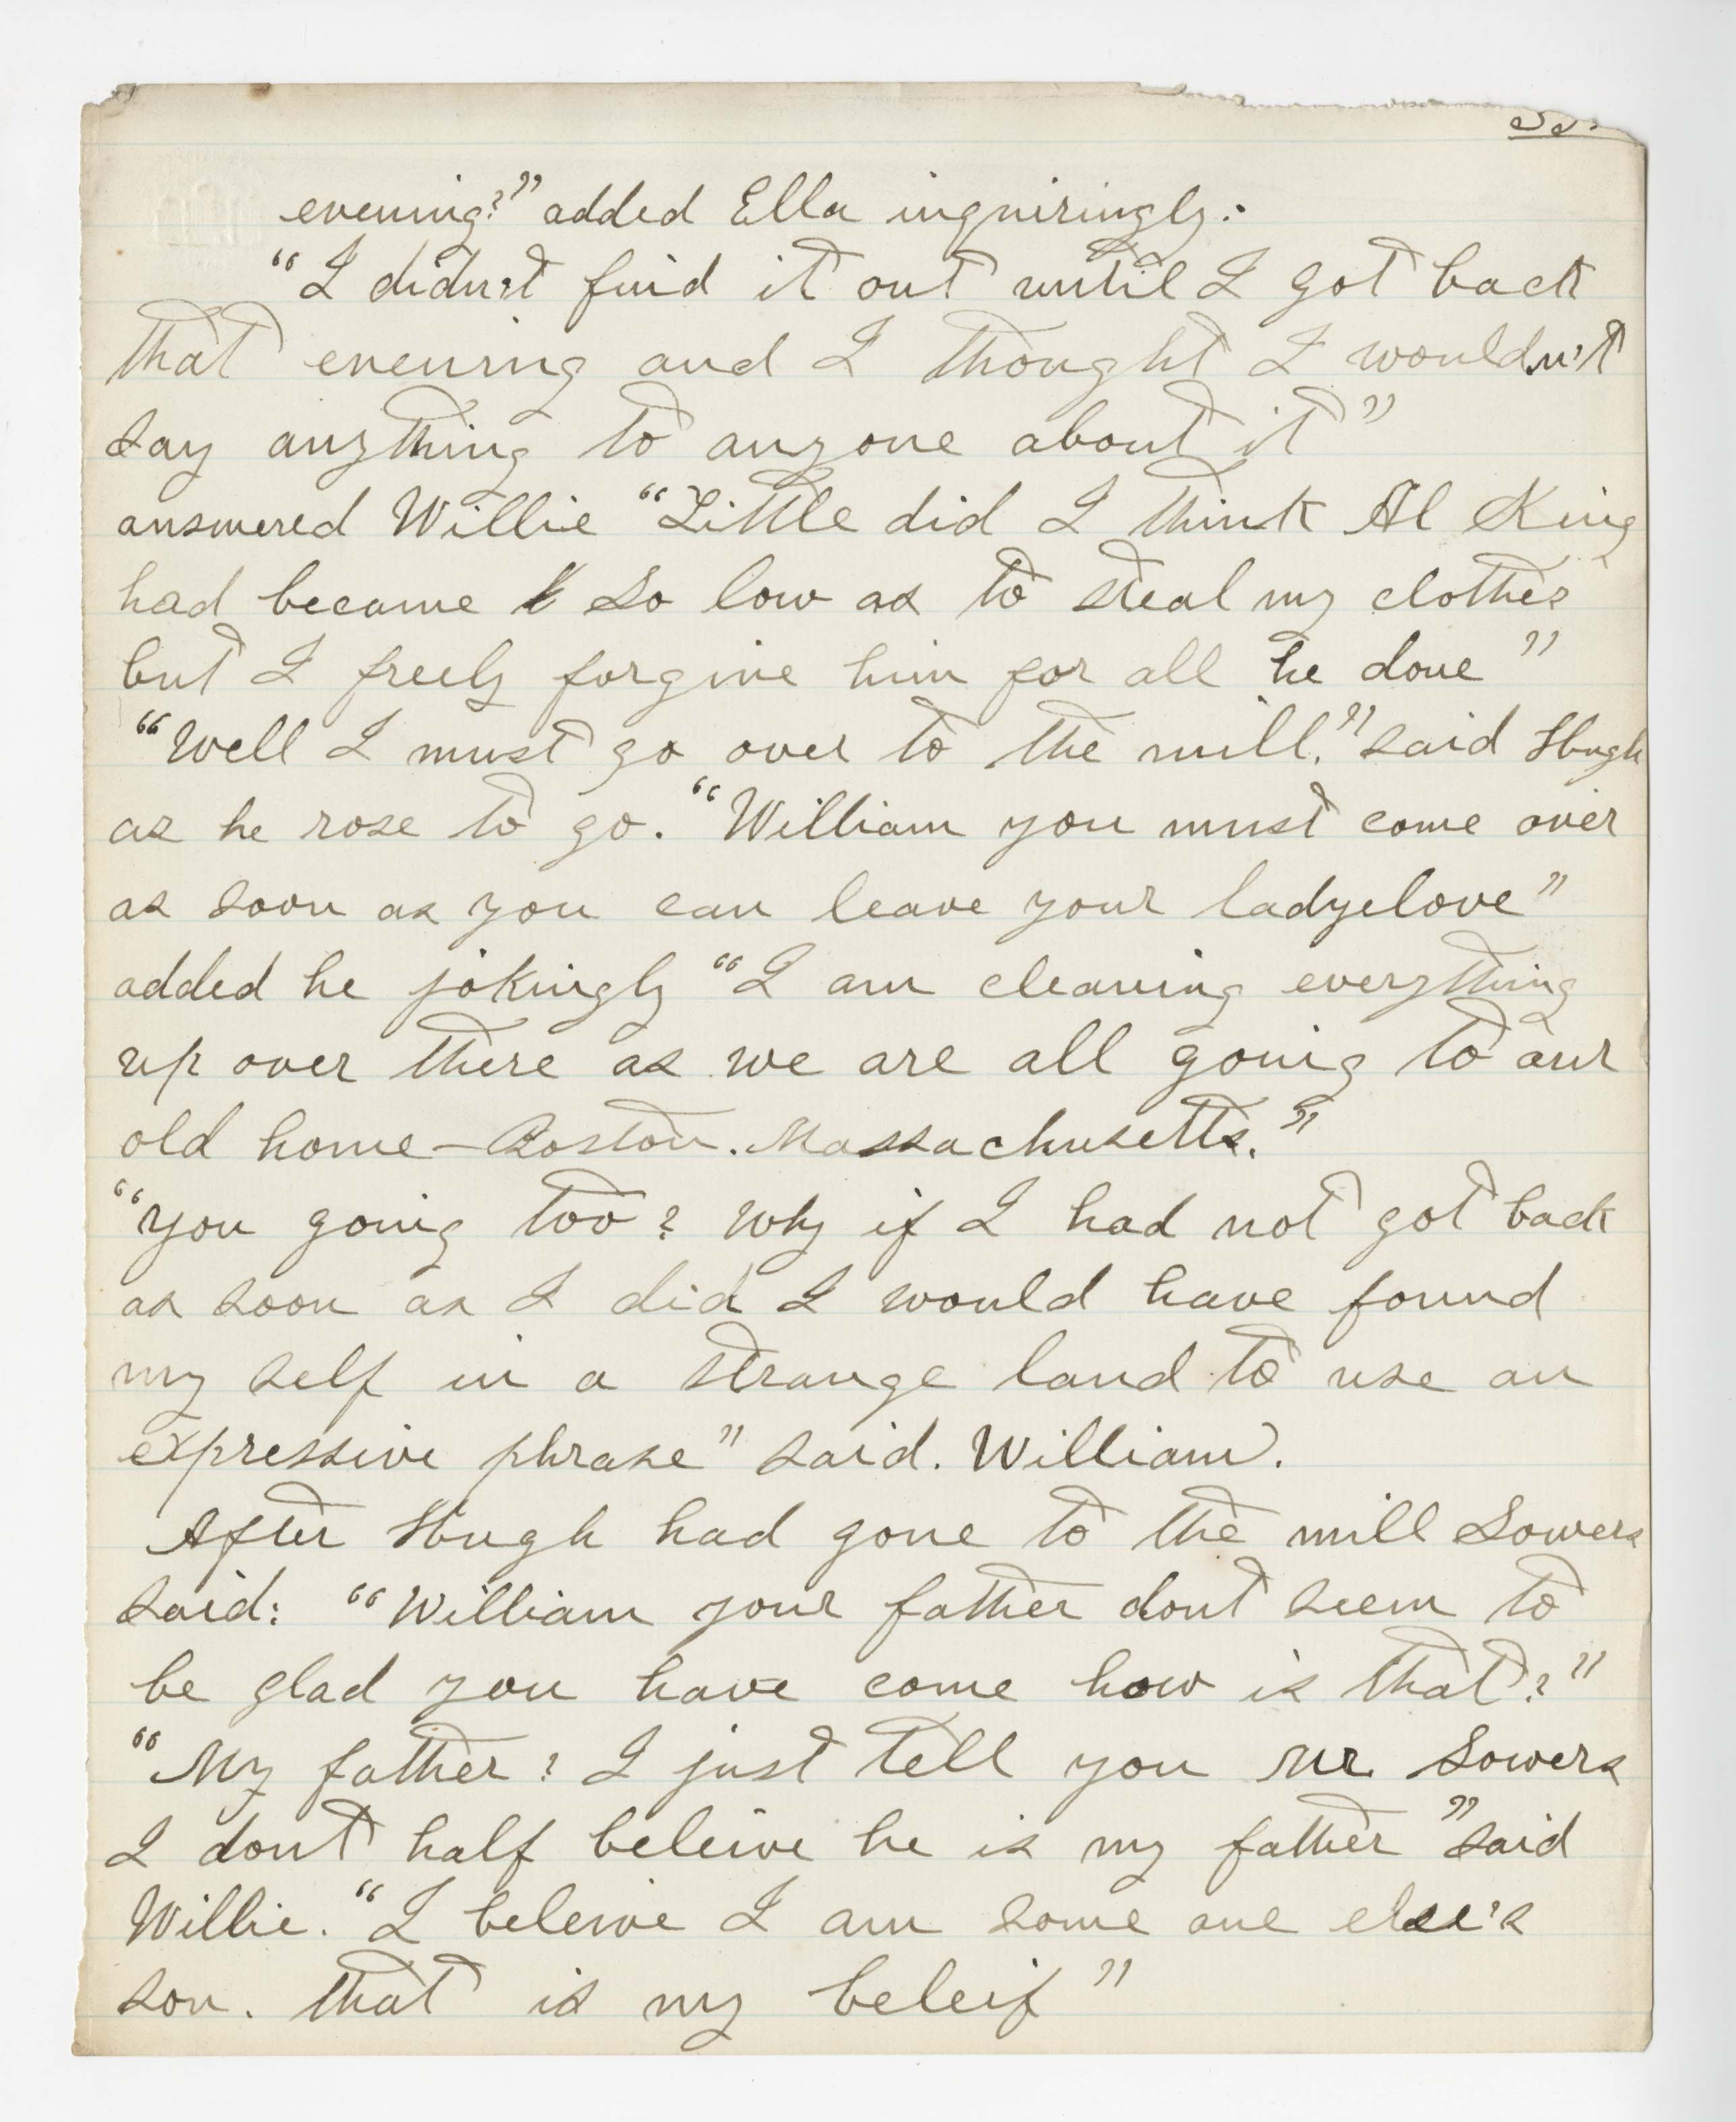 evening?" added Ella inquiringly.
"I didn't find it out until I got back
that evening and I thought I wouldn't
say anything to anyone about it"
answered Willie "Little did I think Al King
had become so low as to steal my clothes
but I freely forgive him for all he done"
"Well I must go over to the mill." said Hugh
as he rose to go. "William you must come over
as soon as you can leave your ladyelove"
added he jokingly "I am cleaning everything
up over there as we are all going to our
old home – Boston. Massachusetts."
"You going too? Why if I had not got back
as soon as I did I would have found
my self in a strange land to use an
expressive phrase" said. William.
After Hugh had gone to the mill Sowers
said: "William your father dont seem to
be glad you have come how is that?"
"My father? I just tell you Mr. Sowers
I dont half beleive he is my father" said
Willie. "I beleive I am some one else's
son. that is my beleif"